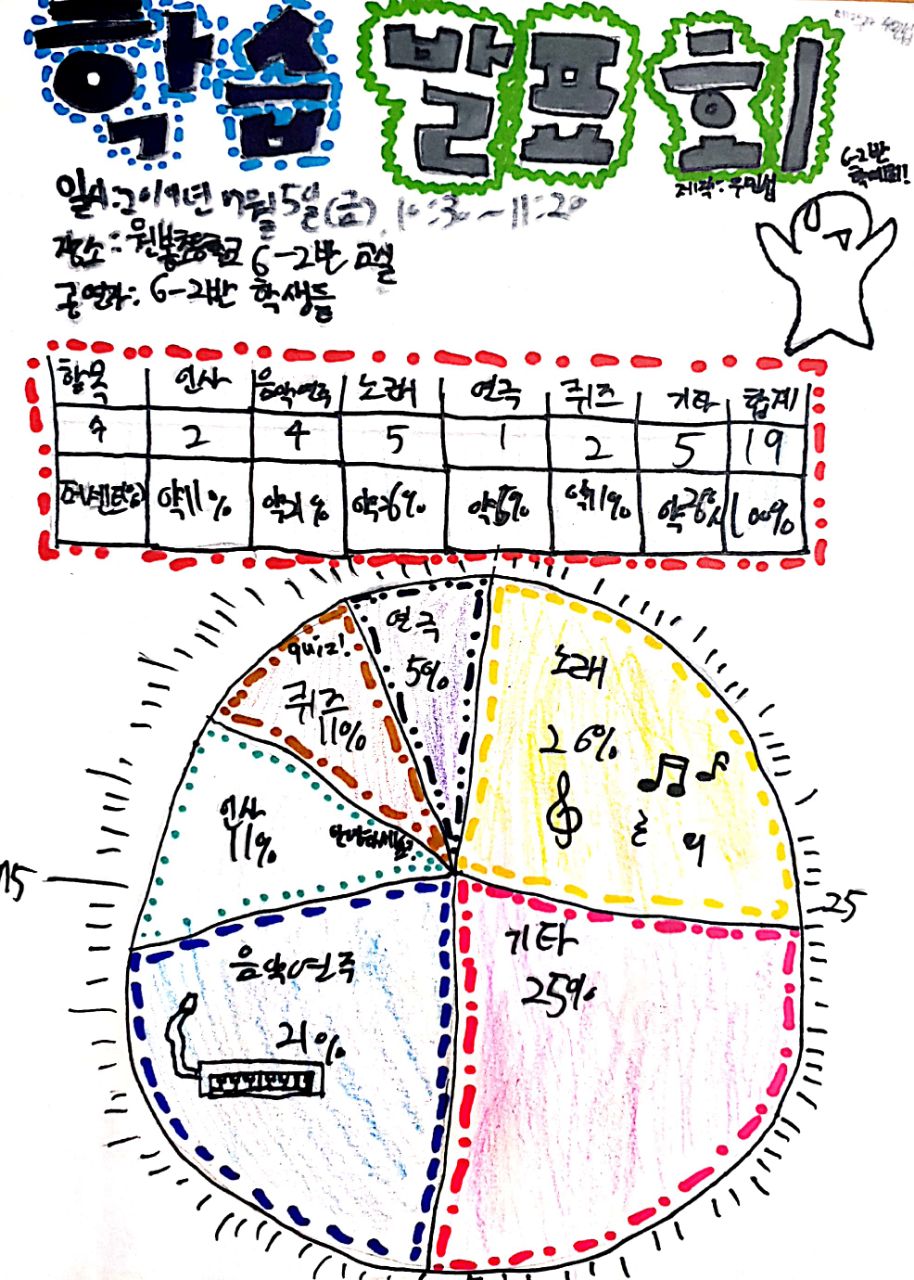 학습 발표회
제작: 주민섭
6-2반
학예회!
일시:2019년 7월 5일(금), 10:30~11:20
장소: 원봉초등학교 6-2반 교실
공연자: 6-2반 학생들
항목 인사 음악연주 노래 연극 퀴즈 기타 합계
수 2 4 5 1 2 5 19
퍼센트(%) 약11% 약21% 약26% 약5% 약11% 약26% 100%
연극
5%
quiz!
퀴즈
11%
노래
26%
인사
11%
안녕하세요?
75
25
기타
25%
음악연주
21%